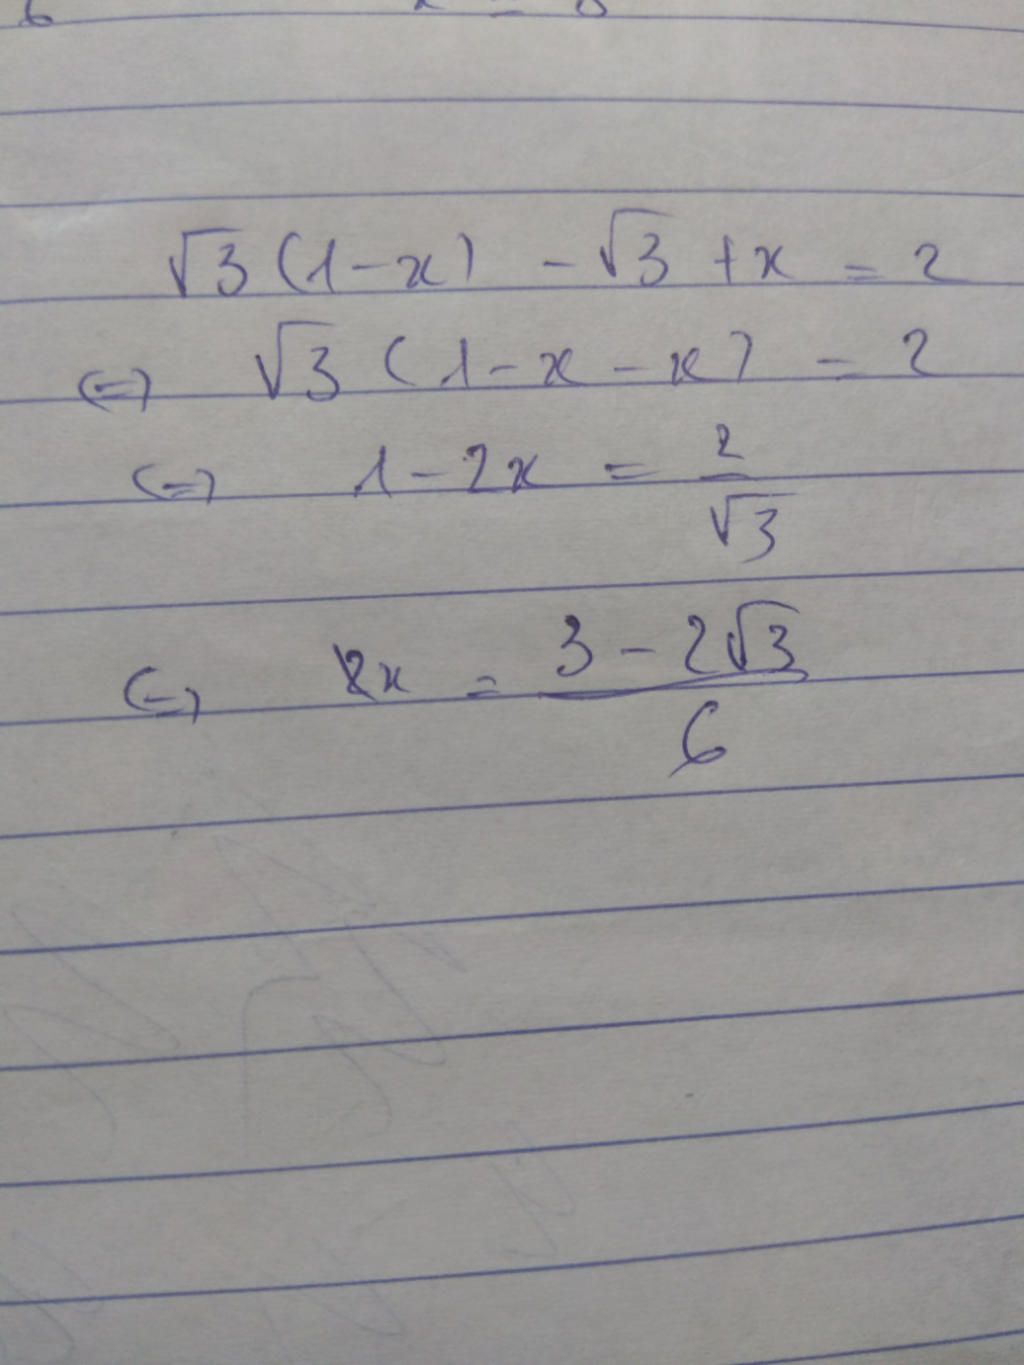 √3 (1-x) - √3 + x = 2
(=) √3 (1 - x - x) = 2
(=) 1 - 2x = 2/√3
(=) x = (3 - 2√3)/6